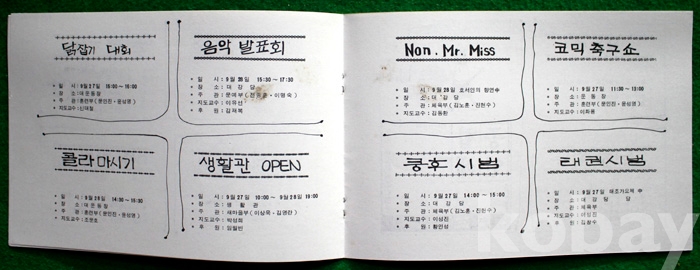 닭잡기 대회
• 일 시 : 9월 27일
• 장 소 : 대운동장
• 주 관 : 훈련부 ( 문인진 · 윤성영 )
• 지도교수 :
음악 발표회
• 일 시 : 9월 26일 15:30 ~ 17:30
• 장 소 : 대 강 당
• 주 관 : 문예부 ( · 이명숙 )
• 지도교수 : 이유선
• 후 원 : 김래복
콜라 마시기
• 일 시 : 9월 26일 14:30 ~ 15:30
• 장 소 : 대 운 동 장
• 주 관 : 훈련부 ( 문인진 · 윤성영 )
• 지도교수 :
생활관 OPEN
• 일 시 : 9월 27일 10:00 ~ 9월 28일 19:00
• 장 소 : 생 활 관
• 주 관 : 새마을부 ( 이상목 · 김영란 )
• 지도교수 : 박성희
• 후 원 : 임월빈
Nan. Mr. Miss
• 일 시 : 9월 28일
• 장 소 : 대 강 당
• 주 관 : 체육부 ( 김노훈 · 진현수 )
• 지도교수 : 김동환
코믹 축구쇼
• 일 시 : 9월 27일 11:00 ~ 13:00
• 장 소 : 운 동 장
• 주 관 : 훈련부 ( 문인진 · 윤성영 )
• 지도교수 : 이화용
쿵후 시범
• 일 시 : 9월 27일 14:00 ~ 15:00
• 장 소 : 대 강 당
• 주 관 : 체육부 ( 김노훈 · 진현수 )
• 지도교수 : 이상진
• 후 원 : 황인성
태권시범
• 일 시 : 9월 27일
• 장 소 : 대 강 당
• 주 관 : 체육부
• 지도교수 : 이상진
• 후 원 :
kobay